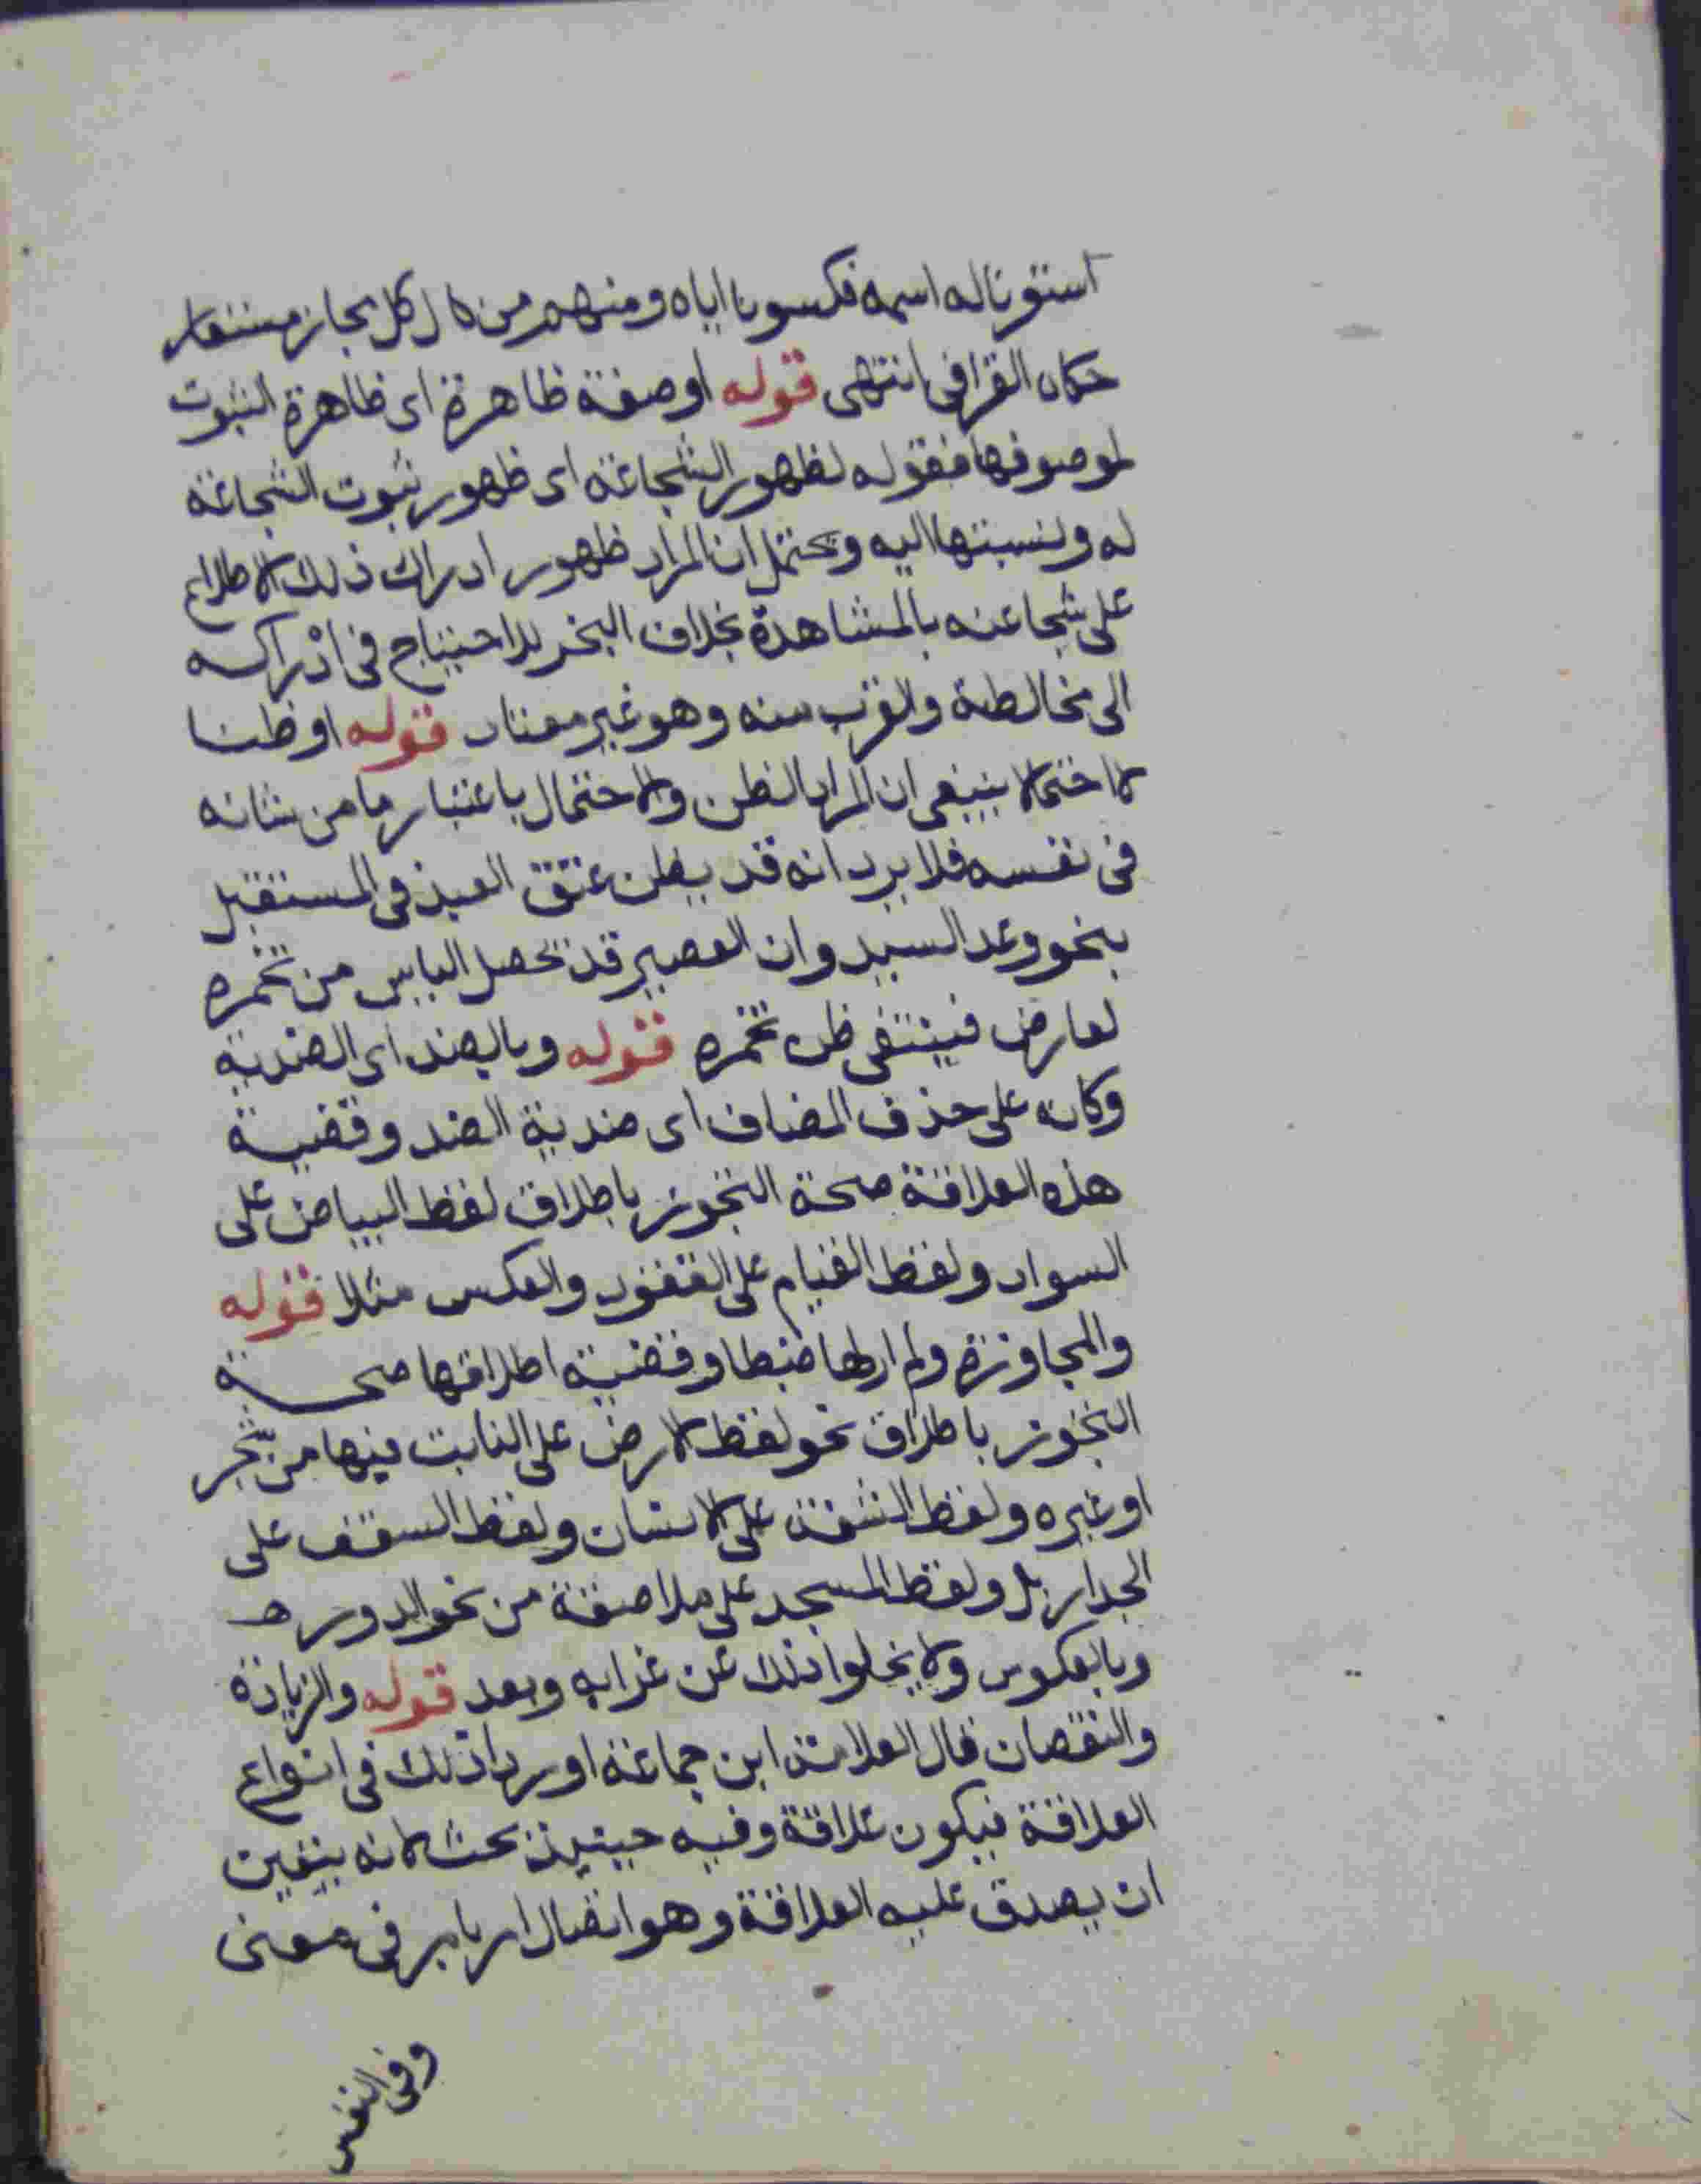 استعرنا له اسمه فكسوناه اياه ومنهم من قال كل مجاز مستعار
حكاه القرافى انتهى قوله او صفة ظاهرة اى ظاهرة الثبوت
لموصوفها فقوله لظهور الشجاعة اى ظهور ثبوت الشجاعة
له ونسبتها اليه ويحتمل ان المراد ظهور ادراك ذلك للاطلاع
على شجاعته بالمشاهدة بخلاف البخر للاحتياج فى ادراكه
الى مخالطة والقرب منه وهو غير معتاد قوله او ظنا
لا احتمالا ينبغى ان المراد الظن والاحتمال باعتبار ما من شانه
فى نفسه فلا يرد انه قد يظن عتق العبد فى المستقبل
بنحو وعد السيد وان العصير قد يحصل الياس من تخمره
لعارض فينتفى ظن تخمره قوله وبالضد اى الضدية
وكانه على حذف المضاف اى ضدية الضد وقضية
هذه العلاقة صحة التجوز باطلاق لفظ البياض على
السواد ولفظ القيام على القعود والعكس مثلا قوله
والمجاوزة ولم ار لها ضبطا وقضية اطلاقها صحة
التجوز باطلاق نحو لفظ الارض على النابت فيها من شجر
او غيره ولفظ الشفة على الاسنان ولفظ السقف على
الجدار بل ولفظ المسجد على ملاصقة من نحو الدور
وبالعكوس ولا يخلوا ذلك عن غرابه وبعد قوله والزيادة
والنقصان قال العلامة ابن جماعة اوردا ذلك فى انواع
العلاقة فيكون علاقة وفيه حينيذ بحث لانه يتعين
ان يصدق عليه العلاقة وهو اتصال امر بامر فى معنى
وفى التفسير